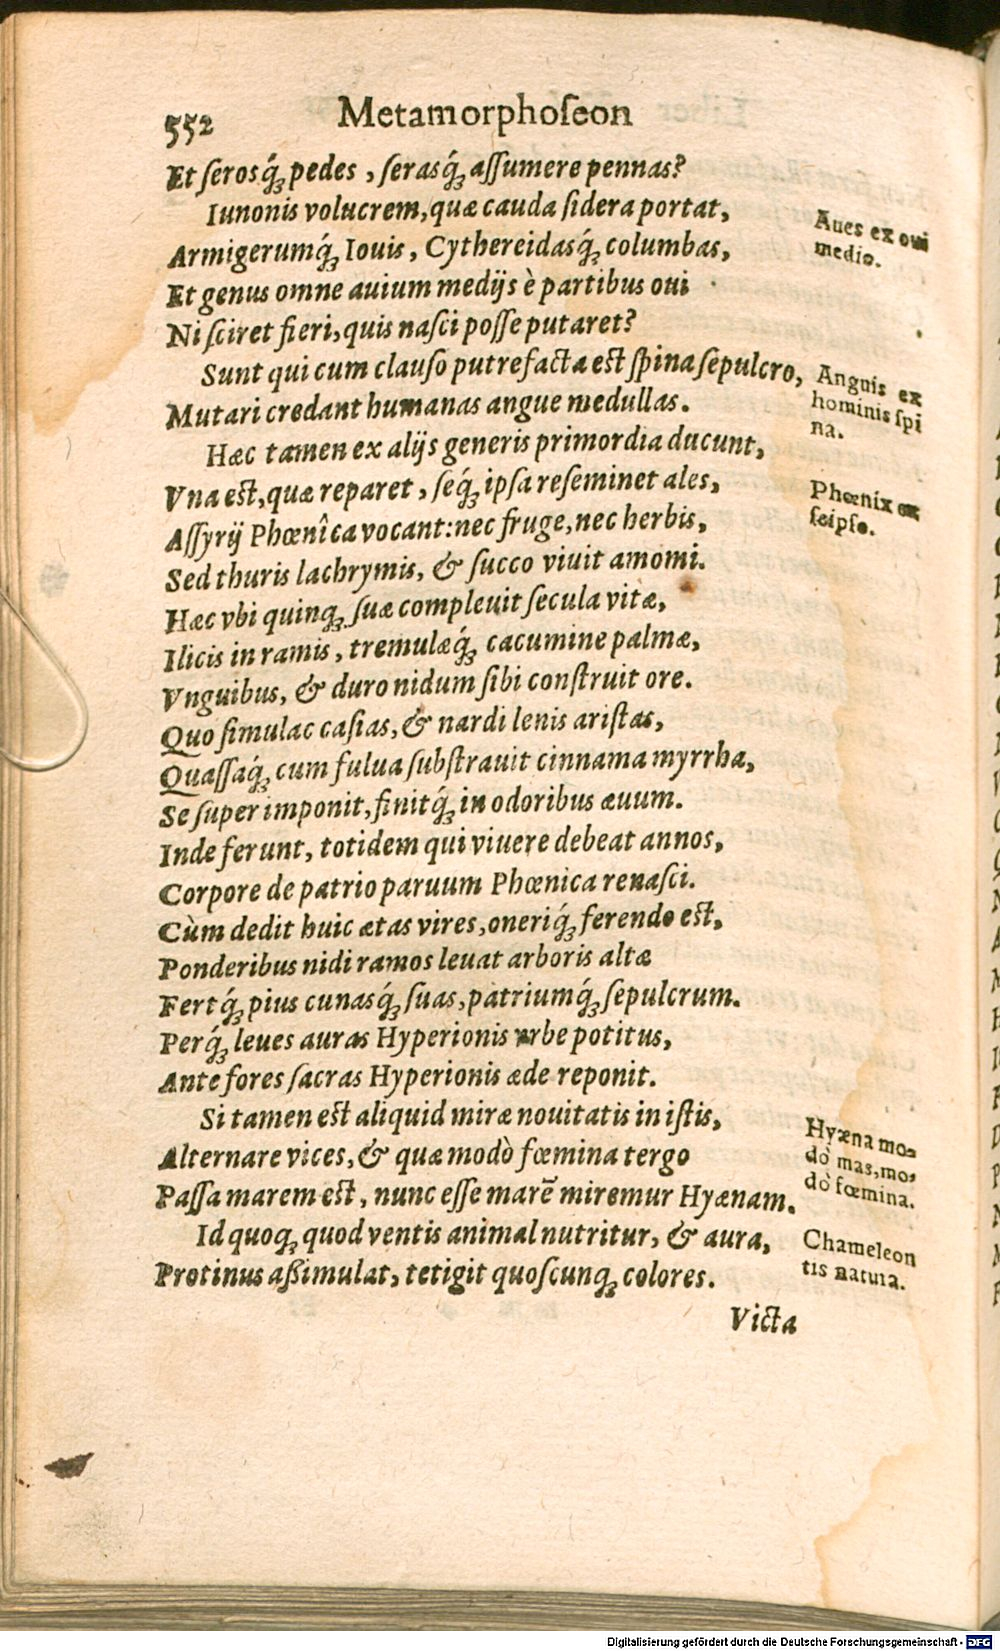 552 Metamorphoſeon
Et ſerosq́ꝫ pedes, ſerasq́ꝫ aſſumere pennas?
Iunonis volucrem, quæ cauda ſidera portat,
Armigerumq́ꝫ Iouis, Cythereidasq́ꝫ columbas,
Et genus omne auium medijs è partibus oui
Ni ſciret fieri, quis naſci poſſe putaret?
Sunt qui cum clauſo putrefacta est ſpina ſepulcro,
Mutari credant humanas angue medullas.
Hæc tamen ex alijs generis primordia ducunt,
Vna est, quæ reparet, ſeq́ꝫ ipſa reſeminet ales,
Aſſyrij Phœnîca vocant: nec fruge, nec herbis,
Sed thuris lachrymis, & ſucco viuit amomi.
Hæc vbi quinqꝫ ſuæ compleuit ſecula vitæ,
Ilicis in ramis, tremulæq́ꝫ cacumine palmæ,
Vnguibus, & duro nidum ſibi conſtruit ore.
Quo ſimulac caſias, & nardi lenis ariſtas,
Quaſſaq́ꝫ cum fulua ſubſtrauit cinnama myrrha,
Se ſuper imponit, finitq́ꝫ in odoribus æuum.
Inde ferunt, totidem qui viuere debeat annos,
Corpore de patrio paruum Phœnica renaſci.
Cùm dedit huic ætas vires, oneriq́ꝫ ferendo est,
Ponderibus nidi ramos leuat arboris altæ
Fertq́ꝫ pius cunasq́ꝫ ſuas, patriumq́ꝫ ſepulcrum.
Perq́ꝫ leues auras Hyperionis vrbe potitus,
Ante fores ſacras Hyperionis æde reponit.
Si tamen est aliquid miræ nouitatis in iſtis,
Alternare vices, & quæ modò fœmina tergo
Paſſa marem est, nunc eſſe marē miremur Hyænam.
Id quoqꝫ quod ventis animal nutritur, & aura,
Protinus aßimulat, tetigit quoſcunqꝫ colores.
Victa
Aues ex oui
medio.
Anguis ex
hominis ſpi
na.
Phœnix ex
ſeipſo.
Hyæna mo-
dò mas, mo-
dò fœmina.
Chameleon
tis natura.
Digitalisierung gefördert durch die Deutsche Forschungsgemeinschaft - DFG